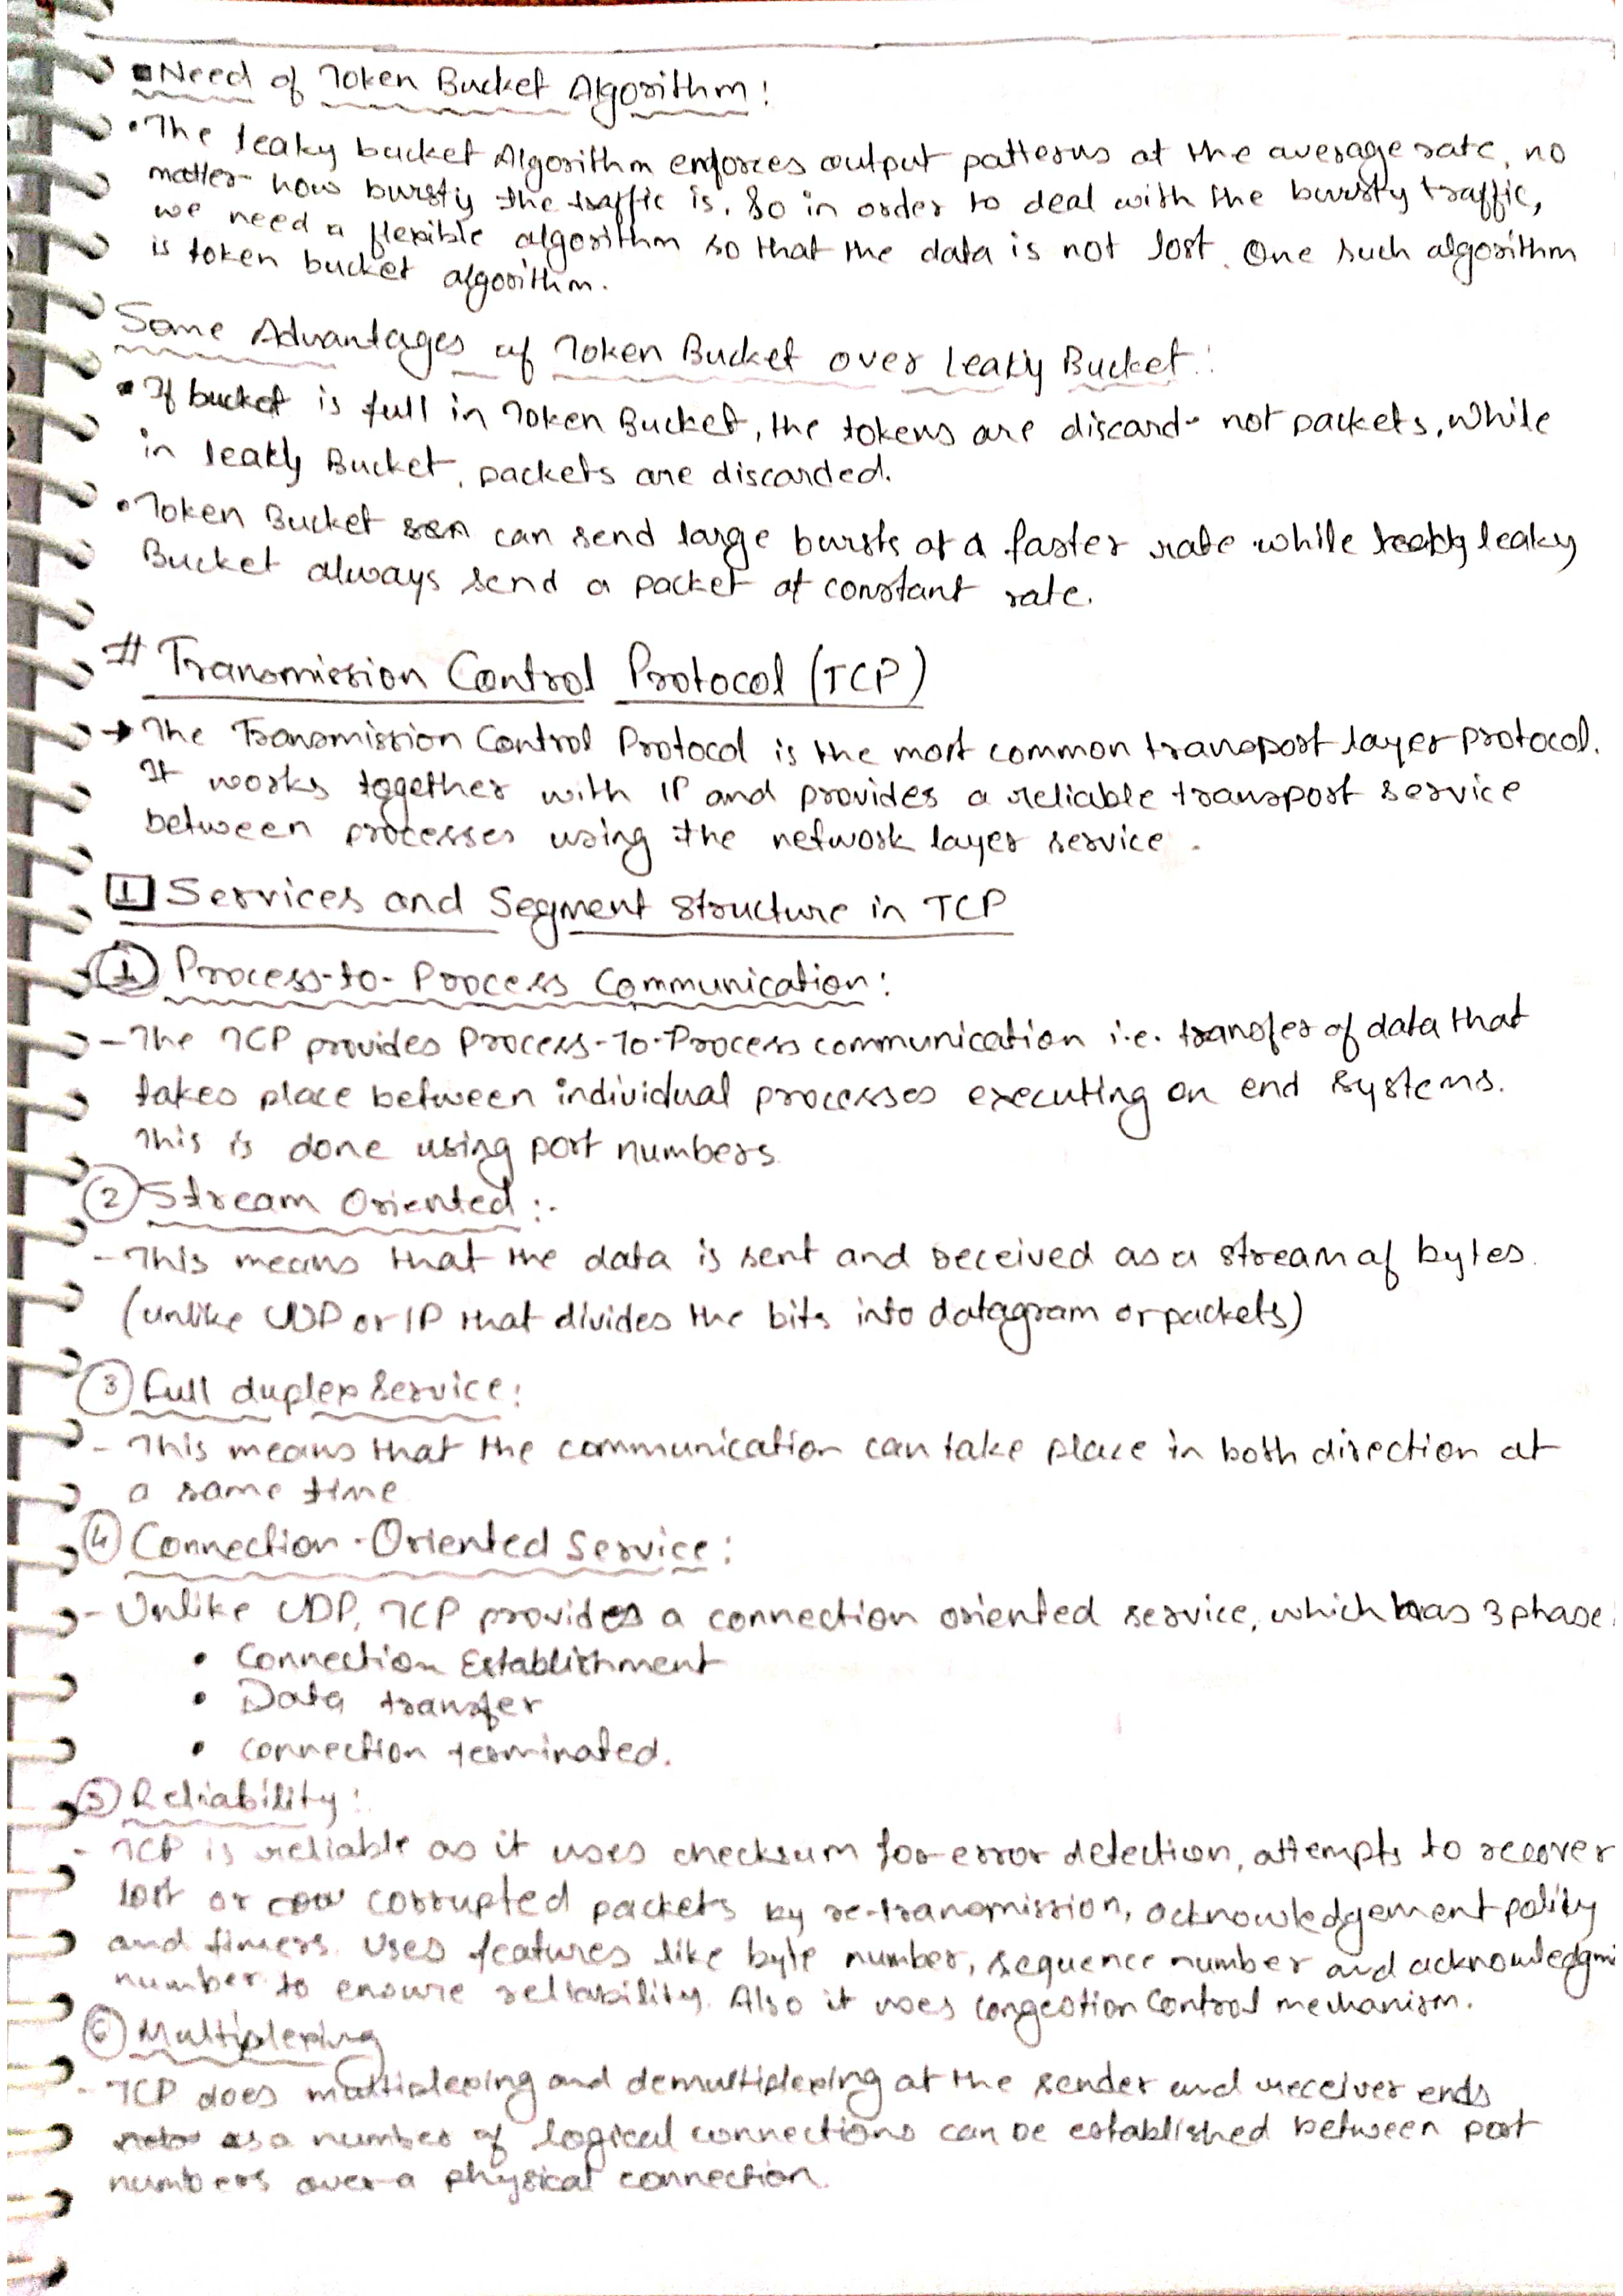 ▪Need of Token Bucket Algorithm:
• The leaky bucket Algorithm enforces output patterns at the average rate, no
matter how bursty the traffic is. So in order to deal with the bursty traffic,
we need a flexible algorithm so that the data is not lost. One such algorithm
is token bucket algorithm.
Some Advantages of Token Bucket over Leaky Bucket:
▪ If bucket is full in Token Bucket, the tokens are discard not packets, while
in leaky Bucket, packets are discarded.
• Token Bucket can send large bursts at a faster rate while leaky
Bucket always send a packet at constant rate.
# Transmission Control Protocol (TCP)
→ The Transmission Control Protocol is the most common transport layer protocol.
It works together with IP and provides a reliable transport service
between processes using the network layer service.
1 Services and Segment structure in TCP
① Process-to-Process Communication:
- The TCP provides Process-To-Process communication i.e. transfer of data that
takes place between individual processes executing on end systems.
This is done using port numbers.
② Stream Oriented:-
- This means that the data is sent and received as a stream of bytes.
(unlike UDP or IP that divides the bits into datagram or packets)
③ Full duplex service:
- This means that the communication can take place in both direction at
a same time
④ Connection-Oriented Service:
- Unlike UDP, TCP provides a connection oriented service, which has 3 phase:
• Connection Establishment
• Data transfer
• connection terminated.
⑤ Reliability:
- TCP is reliable as it uses checksum for error detection, attempts to recover
lost or corrupted packets by re-transmission, acknowledgement policy
and timers. Uses features like byte number, sequence number and acknowledgm
number to ensure reliability. Also it uses congestion control mechanism.
⑥ Multiplexing
- TCP does multiplexing and demultiplexing at the sender and receiver ends
as a number of logical connections can be established between port
numbers over a physical connection.